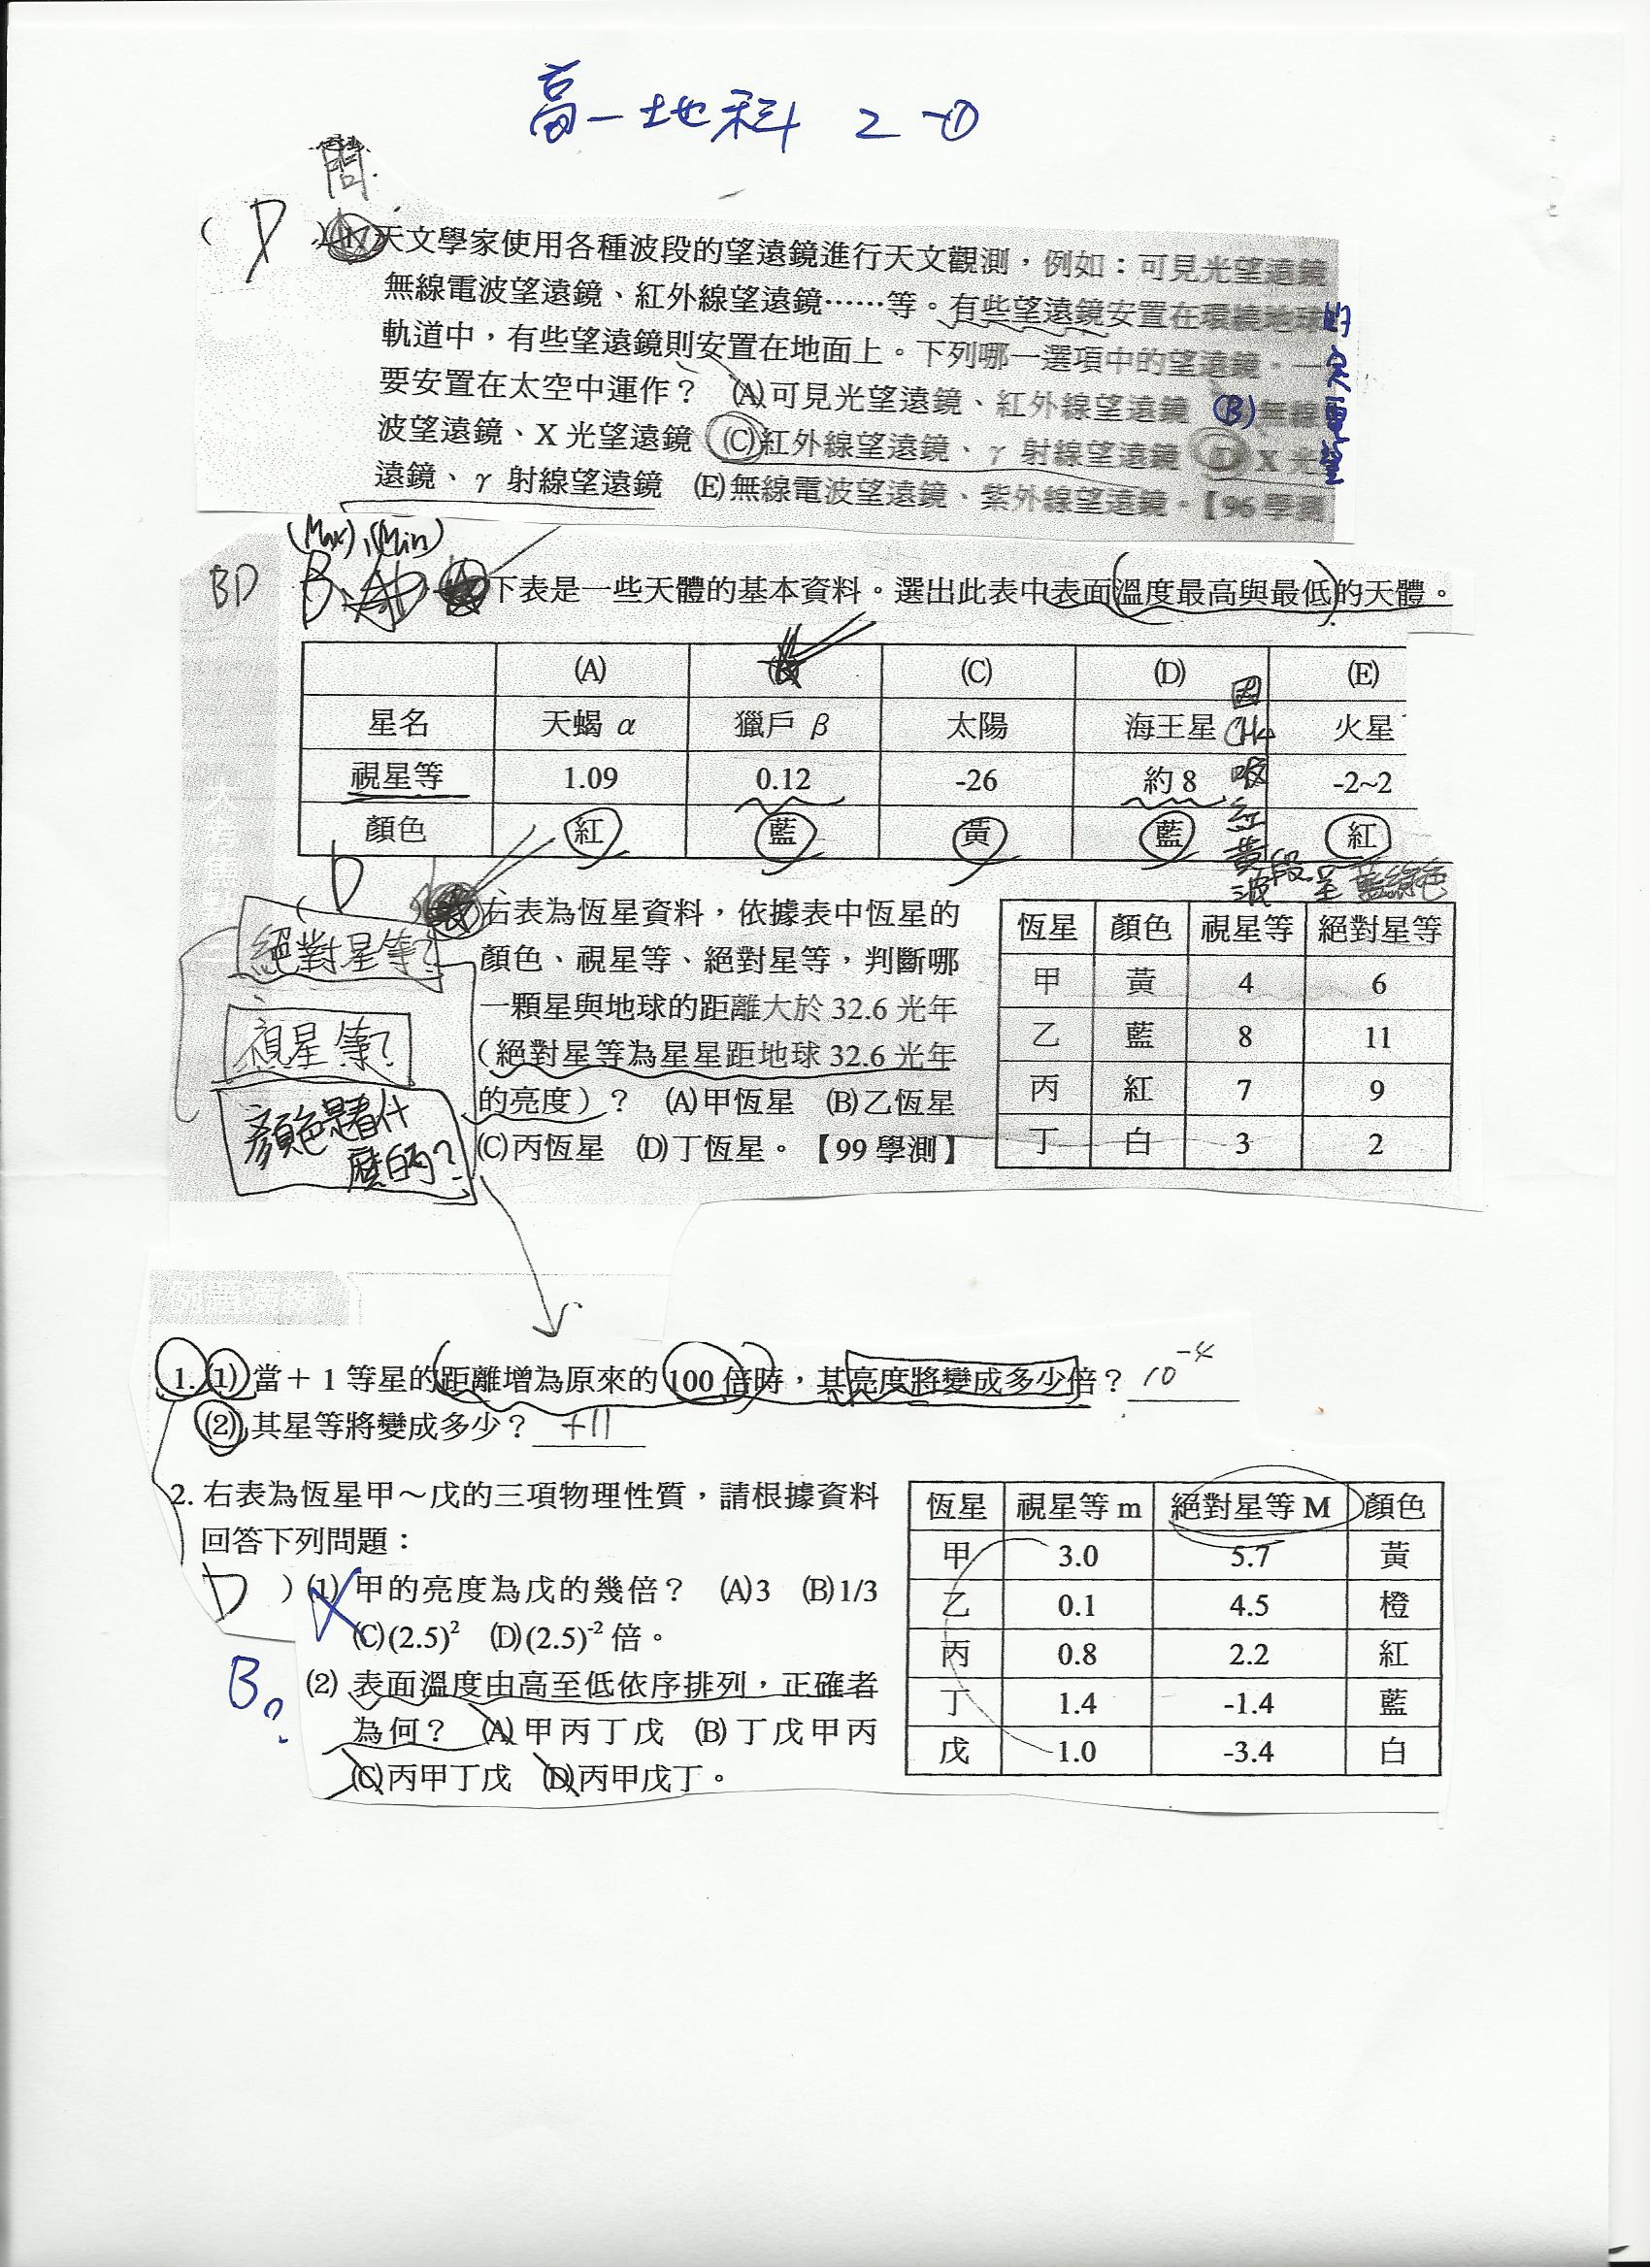 高一地科 2-①
問
( D )
天文學家使用各種波段的望遠鏡進行天文觀測，例如：可見光望遠鏡
無線電波望遠鏡、紅外線望遠鏡……等。有些望遠鏡安置在環繞地球的
軌道中，有些望遠鏡則安置在地面上。下列哪一選項中的望遠鏡，一
要安置在太空中運作？ (A)可見光望遠鏡、紅外線望遠鏡 (B)無線
波望遠鏡、X 光望遠鏡 (C)紅外線望遠鏡、γ 射線望遠鏡 (D) X 光
遠鏡、γ 射線望遠鏡 (E)無線電波望遠鏡、紫外線望遠鏡。【96 學測
(Max)、(Min)
BD B、
下表是一些天體的基本資料。選出此表中表面溫度最高與最低的天體。
(A) (C) (D) (E)
星名 天蝎 α 獵戶 β 太陽 海王星 火星
視星等 1.09 0.12 -26 約 8 -2~2
顏色 紅 藍 黃 藍 紅
因CH4吸紅黃波段呈藍綠色
( D
右表為恆星資料，依據表中恆星的
顏色、視星等、絕對星等，判斷哪
一顆星與地球的距離大於 32.6 光年
（絕對星等為星星距地球 32.6 光年
的亮度）？ (A)甲恆星 (B)乙恆星
(C)丙恆星 (D)丁恆星。【99 學測】
恆星 顏色 視星等 絕對星等
甲 黃 4 6
乙 藍 8 11
丙 紅 7 9
丁 白 3 2
絕對星等?
視星等?
顏色是看什
麼的?
例題演練
1. (1) 當＋1 等星的距離增為原來的 100 倍時，其亮度將變成多少倍？ 10⁻⁴
(2) 其星等將變成多少？ +11
2. 右表為恆星甲～戊的三項物理性質，請根據資料
回答下列問題：
D ) (1) 甲的亮度為戊的幾倍？ (A)3 (B)1/3
(C)(2.5)² (D)(2.5)⁻² 倍。
B?
(2) 表面溫度由高至低依序排列，正確者
為何？ (A)甲丙丁戊 (B)丁戊甲丙
(C)丙甲丁戊 (D)丙甲戊丁。
恆星 視星等 m 絕對星等 M 顏色
甲 3.0 5.7 黃
乙 0.1 4.5 橙
丙 0.8 2.2 紅
丁 1.4 -1.4 藍
戊 1.0 -3.4 白